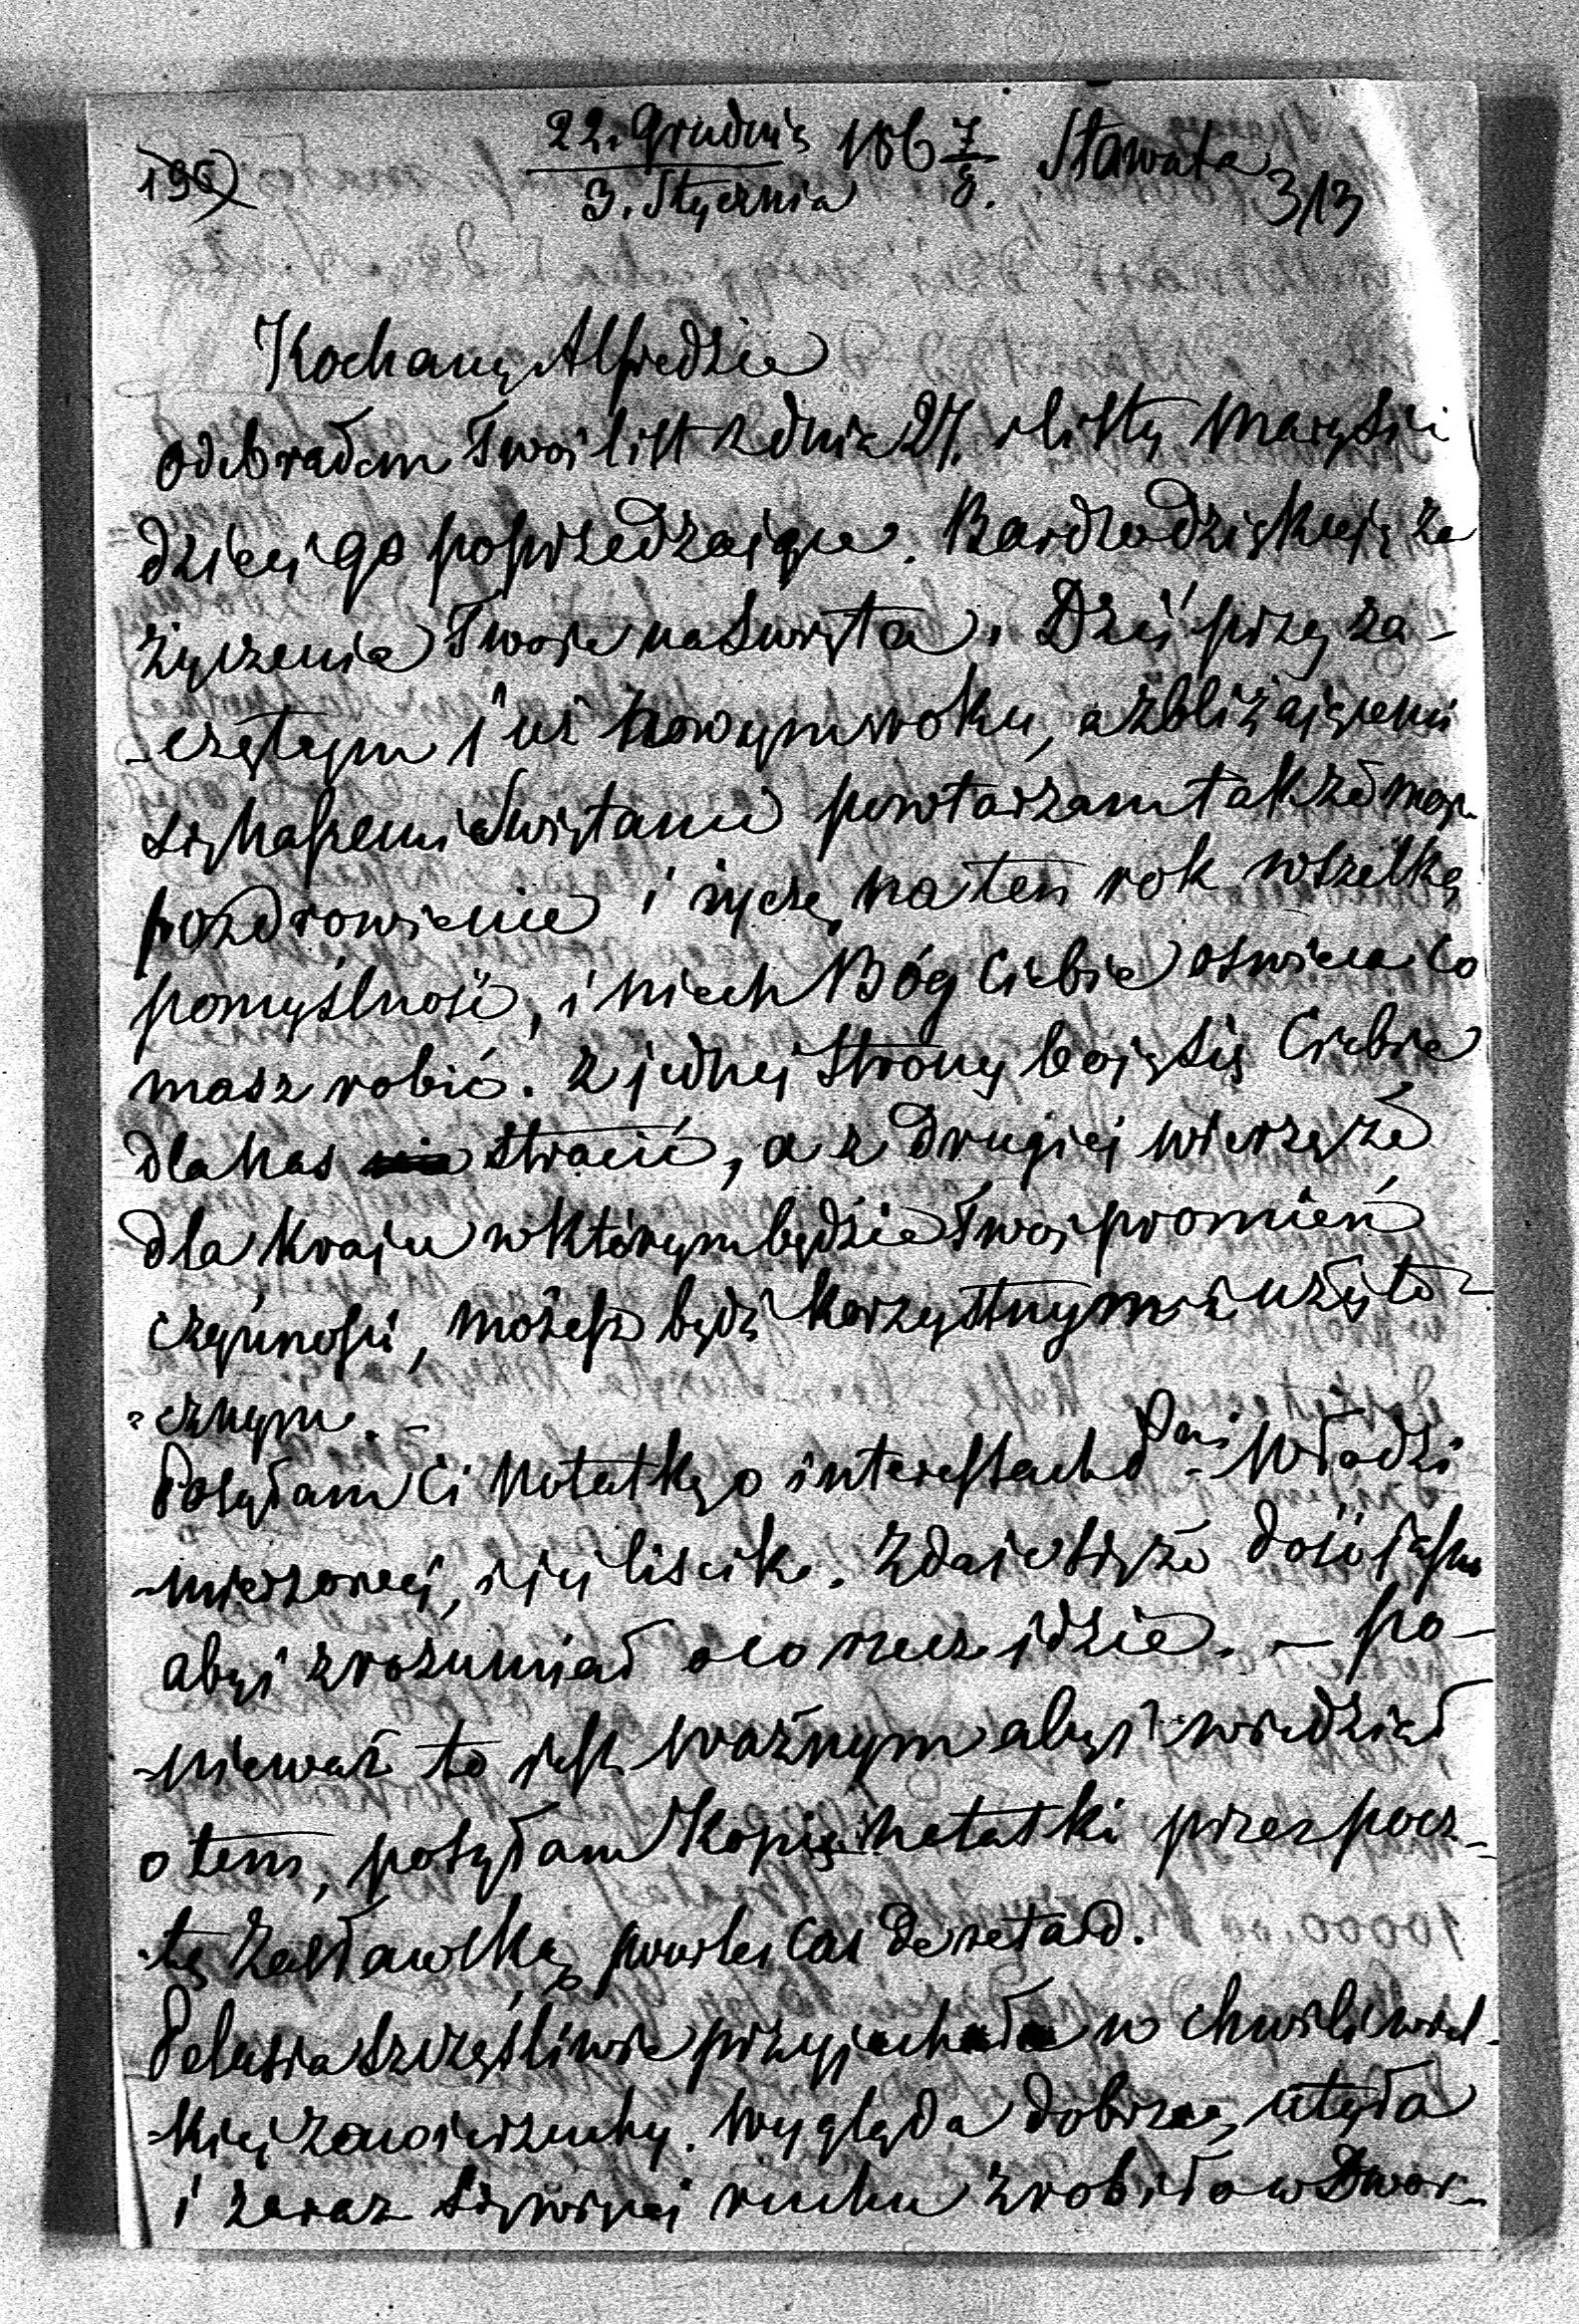 195
22. Grudnia 1867/8. Sławuta
3. Stycznia
313
Kochany Alfredzie
odebrałem Twój list z dnia 27. i listy Marysi i
dzieci go poprzedzające. Bardzo dziękuję za
życzenia Twoje na Święta. Dziś przy za-
-czętym już nowym roku, a zbliżającemi
się naszemi Świętami powtarzam także moje
pozdrowienie i życzę na ten rok wszelką
pomyślność, i niech Bóg Ciebie oświeca co
masz robić. Z jednej strony boję się Ciebie
dla nas stracić, a z drugiej wierzę że
dla kraju w którym będzie Twój promień
czynności, możesz być korzystnym i użyte-
-cznym. -
Posyłam Ci notatkę o interessach Pani Włodzi
-mierzowej, i jej liścik. Zdaje się że dość jasno
abyś zrozumiał o co rzecz idzie. - Po-
-nieważ to jest ważnym abyś wiedział
o tem, posyłam kopię notatki przez pocz-
-tę Zasławską, pour les cas de retard.
Pelasia szczęśliwie przyjechała w chwili wiel-
-kiej zawieruchy. Wygląda dobrze, utyła
i zaraz się więcej ruchu zrobiło w Dwor-